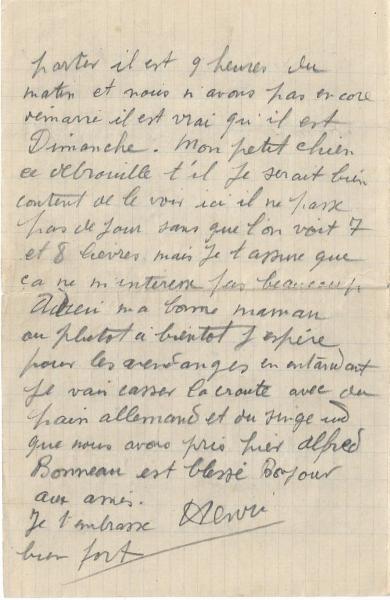 porter il est 9 heures du
matin et nous n'avons pas encore
démarré il est vrai qu'il est
Dimanche. Mon petit chien
ce débrouille t'il Je serait bien
content de le voir ici il ne passe
pas de Jour sans que l'on voit 7
et 8 lièvres mais Je t'assure que
ça ne m'interesse pas beaucoup
Adieu ma bonne maman
ou plutot a bientot J'espére
pour les vendanges en entandant
Je vais casser la croute avec du
pain allemand et du singe
que nous avons pris hier alfred
Bonneau est blessé Bonjour
aux amis.
Je t'embrasse Henri
bien fort